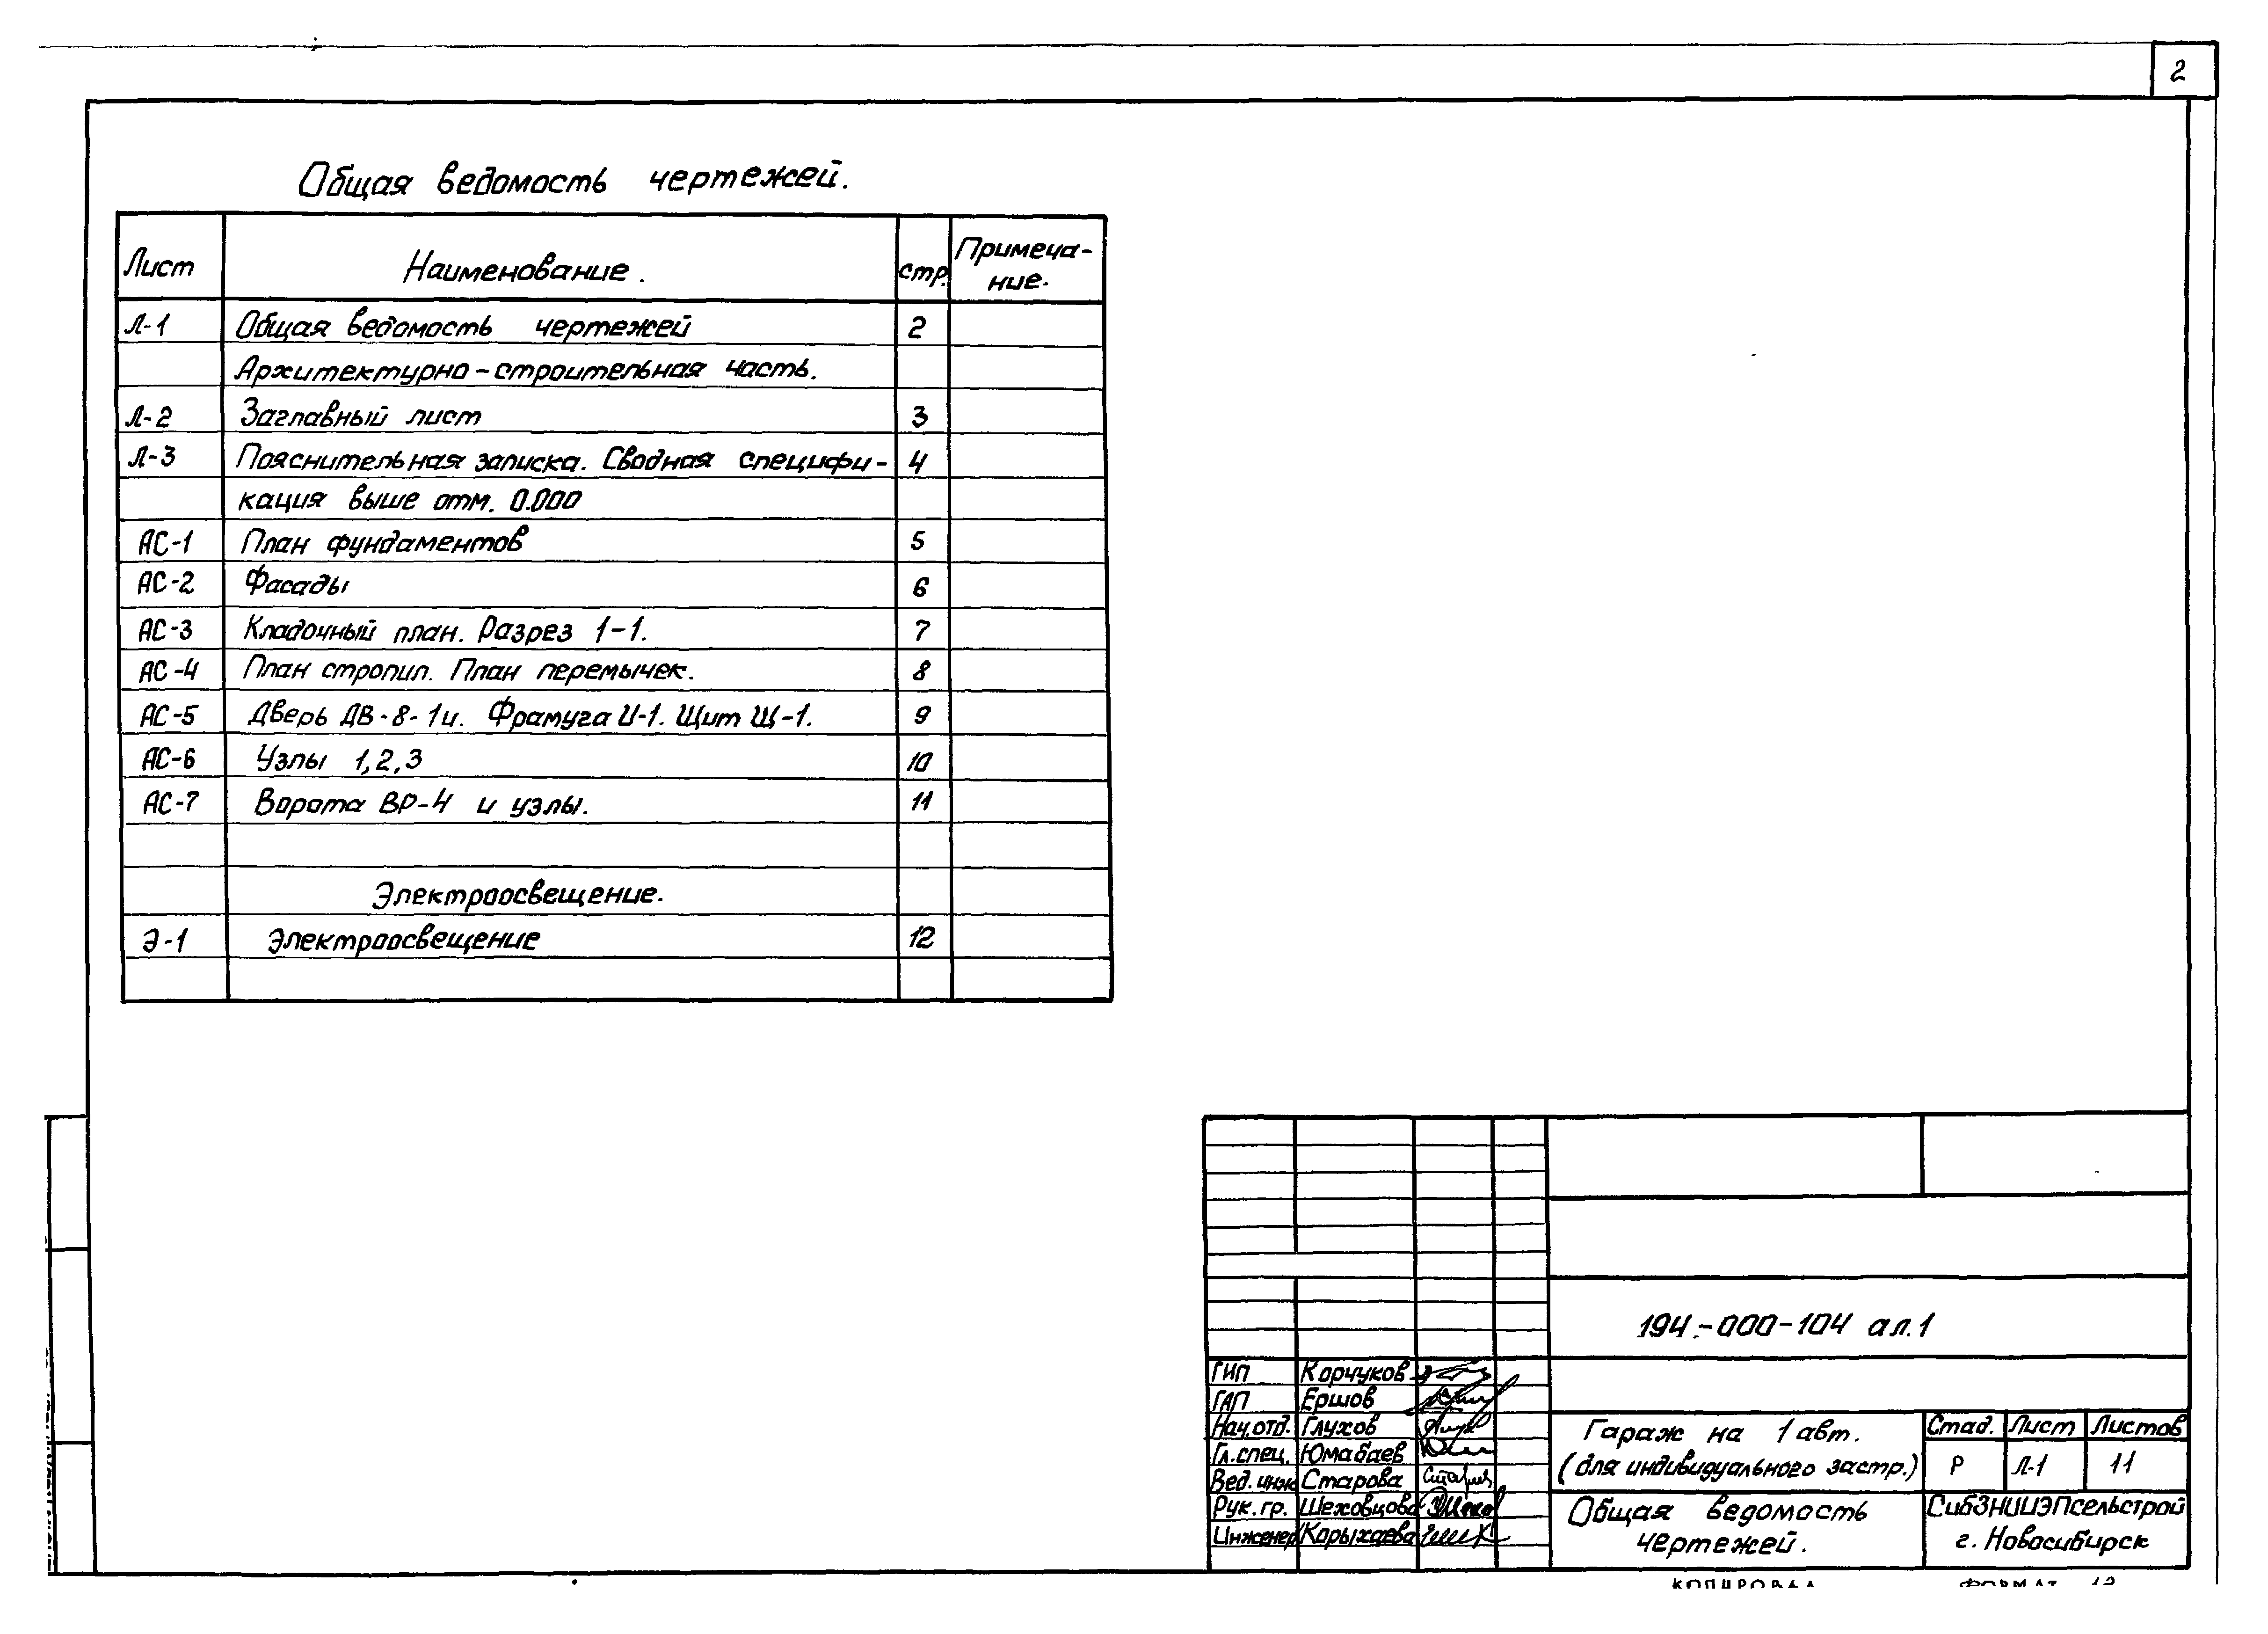 2
Общая ведомость чертежей.
Лист Наименование. стр. Примеча-
ние.
Л-1 Общая ведомость чертежей 2
Архитектурно-строительная часть.
Л-2 Заглавный лист 3
Л-3 Пояснительная записка. Сводная специфи- 4
кация выше отм. 0.000
АС-1 План фундаментов 5
АС-2 Фасады 6
АС-3 Кладочный план. Разрез 1-1. 7
АС-4 План стропил. План перемычек. 8
АС-5 Дверь ДВ-8-1и. Фрамуга И-1. Щит Щ-1. 9
АС-6 Узлы 1,2,3 10
АС-7 Ворота ВР-4 и узлы. 11
Электроосвещение.
Э-1 Электроосвещение 12
194-000-104 ал.1
ГИП Корчуков
ГАП Ершов
Нач.отд. Глухов
Гл.спец. Юмабаев
Вед.инж Старова
Рук.гр. Шеховцова
Инженер Корыхаева
Гараж на 1 авт.
(для индивидуального застр.)
Стад. Лист Листов
Р Л-1 11
Общая ведомость
чертежей.
СибЗНИИЭПсельстрой
г. Новосибирск
КОПИРОВАЛ ФОРМАТ 12